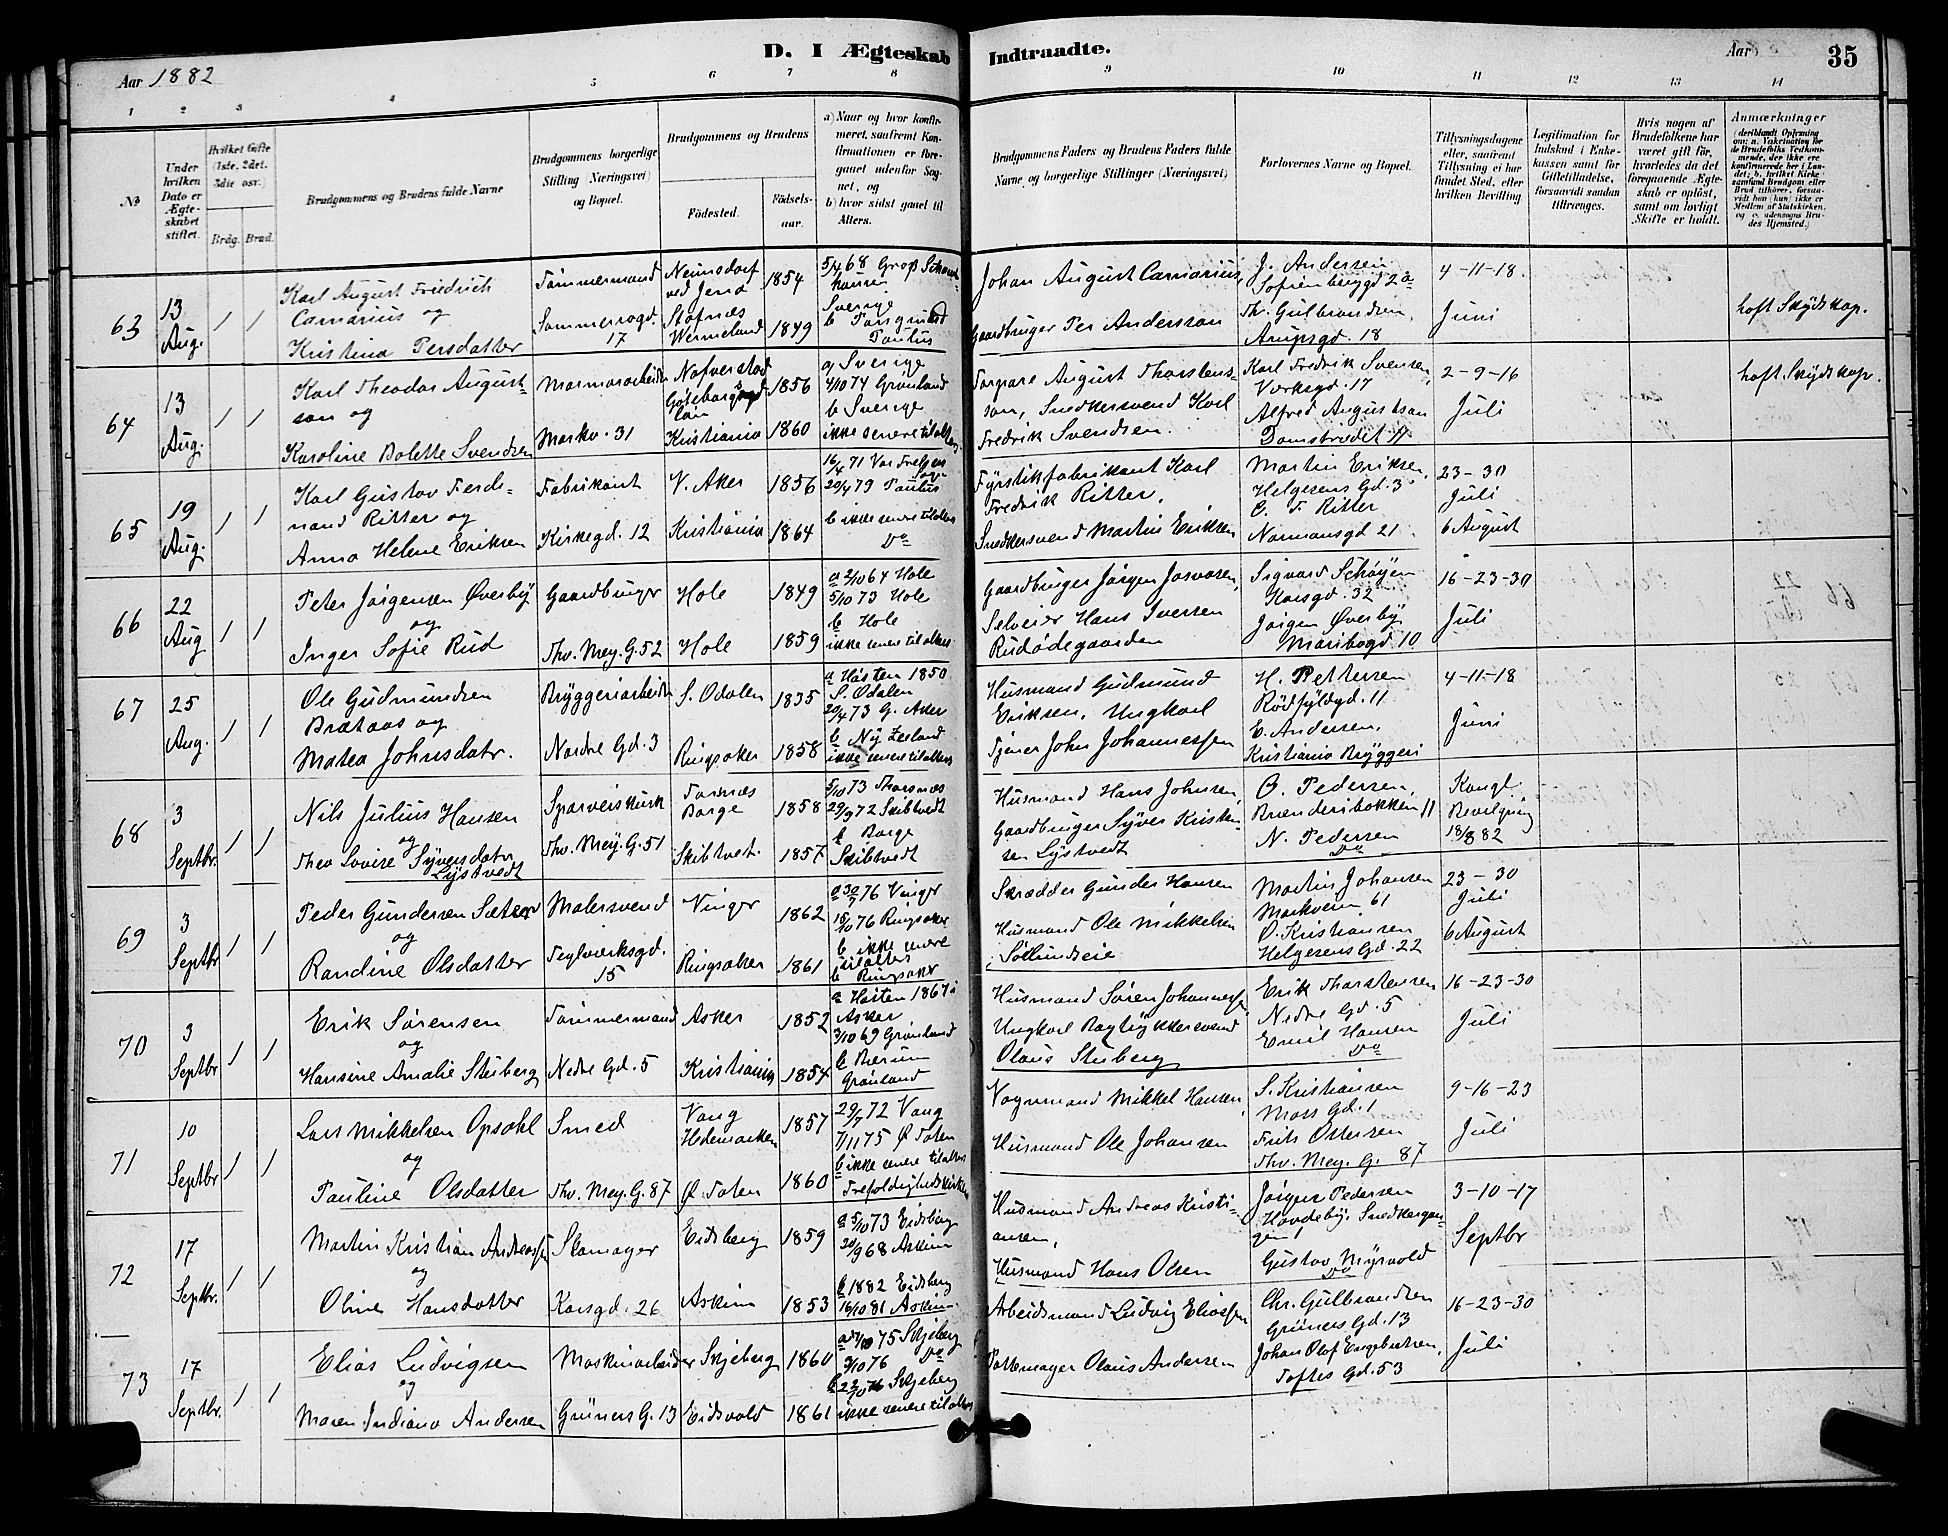 D. I Ægteskab Indtraadte.
Aar 1882
Aar
35
1 2 3 4 5 6 7 8 9 10 11 12 13 14
No
Under hvilken Dato er Ægteskabet stiftet.
Hvilket Gifte (1ste, 2det, 3die osv.)
Brdg. Brud.
Brudgommens og Brudens fulde Navne
Brudgommens borgerlige Stilling (Næringsvei) og Bopæl.
Brudgommens og Brudens
Fødested.
Fødselsaar.
a) Naar og hvor konfirmeret, saafremt Konfirmationen er foregaaet udenfor Sognet, og
b) hvor sidst gaaet til Alters.
Brudgommens Faders og Brudens Faders fulde Navne og borgerlige Stillinger (Næringsvei)
Forlovernes Navne og Bopæl.
Tillysningsdagene eller, saafremt Tillysning ei har fundet Sted, efter hvilken Bevilling.
Legitimation for Indskud i Enkekassen samt for Giftetilladelse, forsaavidt saadan tiltrænges.
Hvis nogen af Brudefolkene har været gift før, hvorledes da det foregaaende Ægteskab er opløst, samt om lovligt Skifte er holdt.
Anmærkninger
63
13 Aug.
1 1
Karl August Friedrich
Carnarius og
Kristina Persdatter
Tømmermand
Sommerrogd. 17
Neunsdorf ved Jena
Stafnæs Wermeland
1854
1849
5/4 68
Sverige
Paulus
Johan August Carnarius,
Gaardbruger Per Andersson
J. Andersen
Sofienberggd 2a
Th. Gulbrandsen,
Arupsgd. 18
4-11-18.
Juni
haft Skydskap.
64
13 Aug.
1 1
Karl Theodor Augustson og
Karoline Bolette Svendsen
Marmorarbeider
Markv. 31
Kristiania
1856
1860
a Sverige
4/10 74 Grønland
b Sverige
ikke senere til alters
Torpare August Thorstensson, Snedkersvend Karl
Fredrik Svendsen.
Karl Fredrik Svensen,
Verksgd. 17
Alfred Augustson
Damstrædet 11
2-9-16
Juli
haft Skydskap.
65
19 Aug.
1 1
Karl Gustav Ferdinand Ritter og
Anna Helene Eriksen
Fabrikant
Kirkegd. 12
V. Aker
Kristiania
1856
1864
16/4 71 Vor Frelsers
20/4 79 Paulus
b ikke senere til alters
Do
Fyrstikfabrikant Karl
Fredrik Ritter,
Snedkersvend Martin Eriksen
Martin Eriksen,
Helgesens Gd. 3
C. F. Ritter
Normansgd 21
23-30
Juli
6 August
66
22 Aug
1 1
Peter Jørgensen Øverby
og
Inger Sofie Rud
Gaardbruger
Thv. Mey. G. 52
Hole
Hole
1849
1859
a 2/10 64 Hole
5/10 73 Hole
b Hole
ikke senere til alters
Selveier Hans Iversen
Rudødegaarden
Sigvard Schøyen
Korsgd. 32
Jørgen Øverby
Maribogd. 10
16-23-30
Juli
67
25 Aug.
1 1
Ole Gudmundsen
Brataas og
Matea Johnsdatr.
Bryggeriarbeider
Nordre Gd. 3
S. Odalen
Ringsaker
1835
1858
a Høsten 1850
S. Odalen
20/4 73 G. Aker
b Ny Zeeland
ikke senere til alters
Husmand Gudmund
Eriksen, Ungkarl
Tjener John Johannessen
H. Pettersen
Rødfyldgd. 11
E. Andersen,
Kristiania Bryggeri
4-11-18
Juni
68
3 Septbr.
1 1
Nils Julius Hansen
og
Thea Lovise Syversdatr
Lystvedt
Sparveiskusk
Thv. Mey. G. 51
Borge
Skibtvet.
1858
1857
5/10 73
29/9 72 Skibtvedt
b Borge
Skibtvedt
Husmand Hans Johnsen,
Gaardbruger Syver Kristensen Lystvedt
O. Pedersen,
Brænderibakken 11
N. Pedersen
Do
Kongl.
Bevilgning
18/8 82
69
3 Septbr
1 1
Peder Gundersen Sæter
og
Randine Olsdatter
Malersvend
Teglverksgd. 15
Vinger
Ringsaker
1862
1861
a 30/7 76 Vinger
15/10 76 Ringsaker
b ikke senere
til alters
b Ringsaker
Skrædder Gunder Hansen
Husmand Ole Mikkelsen
Martin Johansen
Markveien 61
O. Kristiansen
Helgesens Gd. 22
23-30
Juli
6 August
70
3 Septbr
1 1
Erik Sørensen
og
Hansine Amalie Stuberg
Tømmermand
Nedre Gd. 5
Asker
Kristiania
1852
1854
a Høsten 1867 i
Asker
3/10 69 Grønland
b Bærum
Grønland
Husmand Søren Johannessen
Ungkarl Bagtrykkersvend
Olaus Stuberg
Erik Thorstensen
Nedre Gd. 5
Emil Hansen
Do
16-23-30
Juli
71
10 Septbr
1 1
Lars Mikkelsen Opsahl
og
Pauline Olsdatter
Smed
Thv. Mey. G. 87
Vang Hedemarken
Ø. Toten
1857
1860
29/7 72 Vang
7/11 75 Ø Toten
b ikke senere til alters
Trefoldighedskirken
Vognmand Mikkel Hansen,
Husmand Ole Johansen
S. Kristiansen
Moss Gd. 1
Frits Ottersen
Thv. Mey. G. 87
9-16-23
Juli
72
17 Septbr.
1 1
Martin Kristian Andreassen
og
Oline Hansdatter
Skomager
Korsgd. 26
Eidsberg
Askim
1859
1853
a 5/10 73 Eidsberg
20/9 68 Askim
b 1882 Eidsberg
16/10 81 Askim
Husmand Andreas Kristiansen,
Husmand Hans Olsen
Jørgen Pedersen
Hovdeby.
Gustav Myrvold
Do
3-10-17
Septbr
73
17 Septbr.
1 1
Elias Ludvigsen
og
Maren Indiana Andersen
Maskinarbeider
Grüners G. 13
Skjeberg
Eidsvold
1860
1861
75 Skjeberg
76 Do
Skjeberg
ikke senere til alters
Arbeidsmand Ludvig Eliassen
Pottemager Olaus Andersen
Chr. Gulbrandsen
Grüners Gd. 13
Johan Olaf Engebretsen,
Toftes Gd. 53
16-23-30
Juli